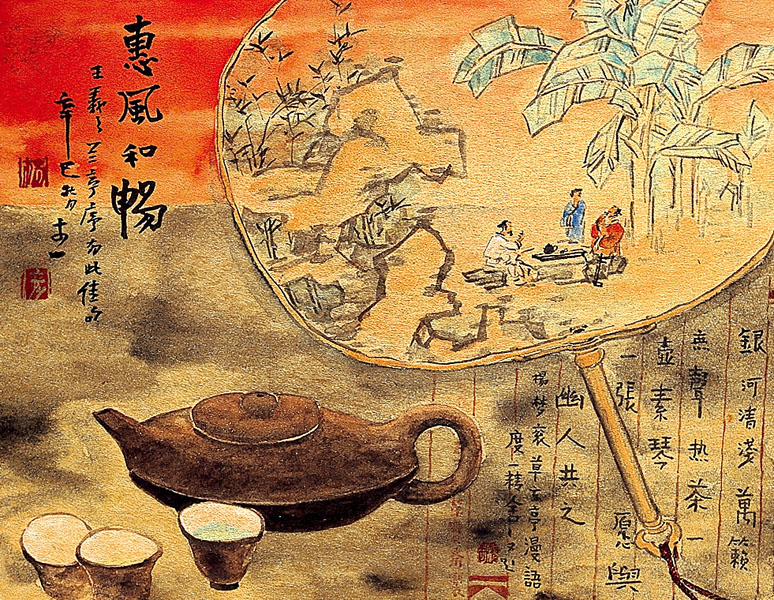 惠風和暢
王羲之兰亭序有此佳句
辛巳
銀河清淺萬籟
無聲热茶一
壺素琴
一張愿與
幽人共之
楊梦衮草玄亭漫語
度一精舍